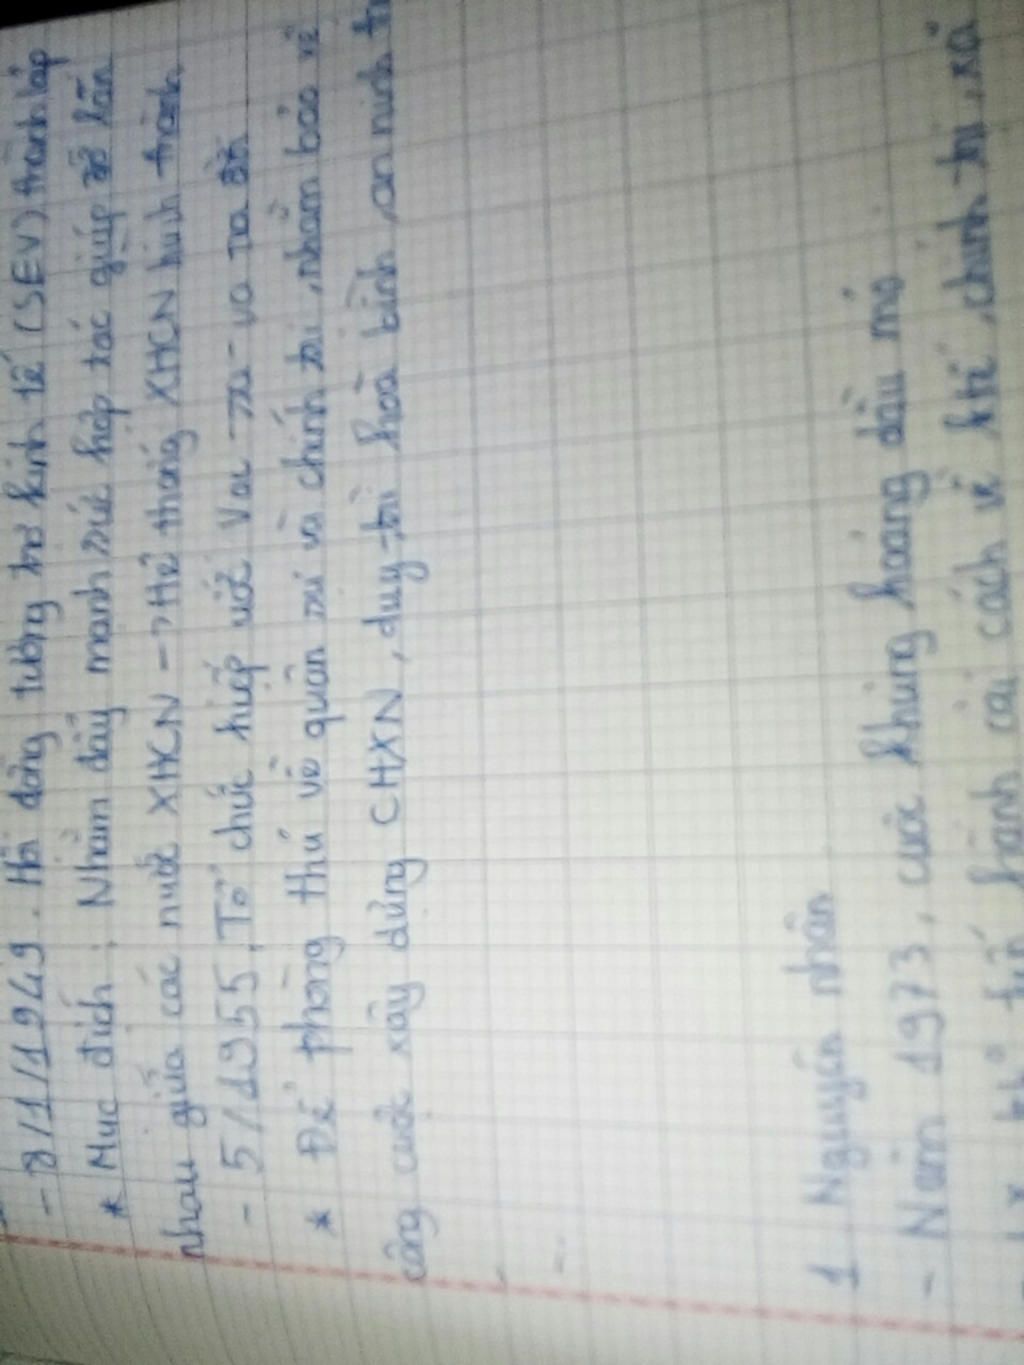 - 8/1/1949. Hội đồng tương trợ kinh tế (SEV) thành lập
* Mục đích: Nhằm đẩy mạnh sức hợp tác giúp đỡ lẫn
nhau giữa các nước XHCN -> Hệ thống XHCN hình thành
- 5/1955, Tổ chức hiệp ước Vac-sa-va ra đời
* Để phòng thủ về quân sự và chính trị, nhằm bảo vệ
công cuộc xây dựng CHXN, duy trì hoà bình, an ninh
1 Nguyên nhân
- Năm 1973, cuộc khủng hoảng dầu mỏ
tiến hành cải cách về ktế, chính trị, xã